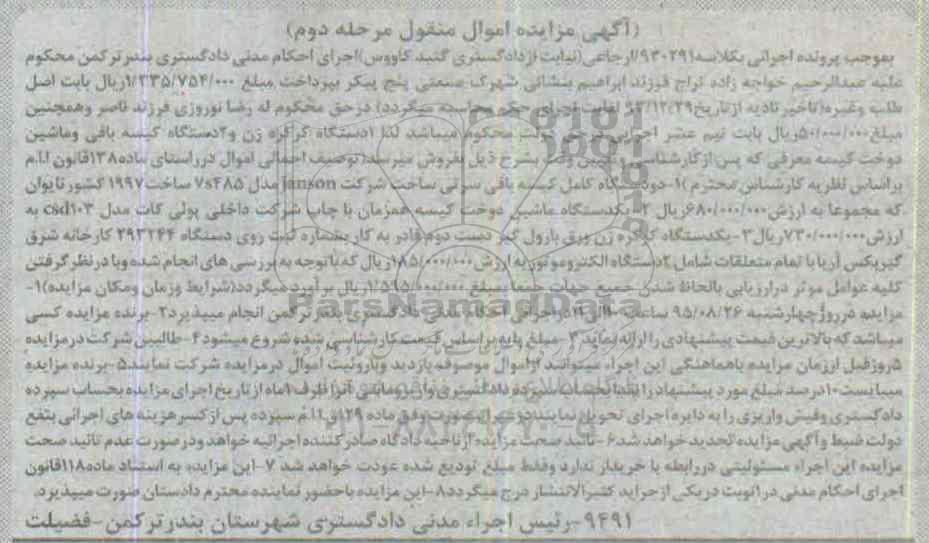 (آگهی مزایده اموال منقول مرحله دوم)
بموجب پرونده اجرائی بکلاسه ۹۳۰۲۹۱/ارجاعی(نیابت از دادگستری گنبد کاووس)اجرای احکام مدنی دادگستری بندر ترکمن محکوم
علیه عبدالرحیم خواجه زاده تراج فرزند ابراهیم بنشانی شهرک صنعتی پنج پیکر بپرداخت مبلغ ۱/۲۳۵/۷۵۴/۰۰۰ریال بابت اصل
طلب وغیره(تاخیر تادیه از تاریخ ۹۳/۱۲/۲۹ لغایت اجرای حکم محاسبه میگردد)درحق محکوم له رضا نوروزی فرزند ناصر وهمچنین
مبلغ ۵۰/۰۰۰/۰۰۰ریال بابت نیم عشر اجرایی درحق دولت محکوم میباشد لذا ۱دستگاه کرکره زن و۲دستگاه کیسه بافی وماشین
دوخت کیسه معرفی که پس ازکارشناسی وتعیین وقت بشرح ذیل بفروش میرسد(توصیف اجمالی اموال درراستای ماده۱۳۸قانون ا.ا.م
براساس نظریه کارشناس محترم)۱-دودستگاه کامل کیسه بافی سرتی ساخت شرکت janson مدل ۷s۴۸۵ ساخت۱۹۹۷ کشور تایوان
که مجموعا به ارزش ۶۸۰/۰۰۰/۰۰۰ریال ۲-یکدستگاه ماشین دوخت کیسه همزمان با چاپ شرکت داخلی پولی کات مدل csd۱۰۳ به
ارزش ۷۳۰/۰۰۰/۰۰۰ریال۳-یکدستگاه کرکره زن ورق بارول گیر دست دوم قادر به کار بشماره ثبت روی دستگاه ۲۹۳۲۴۴ کارخانه شرق
گیربکس آریا با تمام متعلقات شامل ۲دستگاه الکتروموتور به ارزش ۱۸۵/۰۰۰/۰۰۰ریال که باتوجه به بررسی های انجام شده وبا در نظر گرفتن
کلیه عوامل موثر درارزیابی بالحاظ شدن جمیع جهات جمعا بمبلغ ۱/۵۹۵/۰۰۰/۰۰۰ریال برآورد میگردد(شرایط وزمان ومکان مزایده)۱-
مزایده درروز چهارشنبه ۹۵/۰۸/۲۶ ساعت ۱۰الی۱۱ دراجرای احکام مدنی دادگستری بندرترکمن انجام میپذیرد۲-برنده مزایده کسی
میباشد که بالاترین قیمت پیشنهادی را ارائه نماید۳-مبلغ پایه براساس قیمت کارشناسی شده شروع میشود۴-طالبین شرکت درمزایده
۵روزقبل اززمان مزایده باهماهنگی این اجراء میتوانند ازاموال موصوفه بازدید وبارویت اموال درمزایده شرکت نمایند۵-برنده مزایده
میبایست۱۰درصد مبلغ مورد پیشنهاد را نقدا بحساب سپرده دادگستری واریز ومابقی آنرا ظرف ۱ماه از تاریخ اجرای مزایده بحساب سپرده
دادگستری وفیش واریزی را به دایره اجرای تحویل نمایند درغیراینصورت وفق ماده ۱۲۹ق.ا.ا.م سپرده پس ازکسرهزینه های اجرائی بنفع
دولت ضبط وآگهی مزایده تجدید خواهد شد۶-تائید صحت مزایده ازناحیه دادگاه صادرکننده اجرائیه خواهد ودرصورت عدم تائید صحت
مزایده این اجراء مسئولیتی دررابطه با خریدار ندارد وفقط مبلغ تودیع شده عودت خواهد شد ۷-این مزایده به استناد ماده۱۱۸قانون
اجرای احکام مدنی در۱نوبت دریکی ازجراید کثیرالانتشار درج میگردد۸-این مزایده باحضور نماینده محترم دادستان صورت میپذیرد.
۹۴۹۱-رئیس اجراء مدنی دادگستری شهرستان بندرترکمن-فضیلت
ParsNamadData
۰۲۱-۸۸۳۴۹۶۷۰